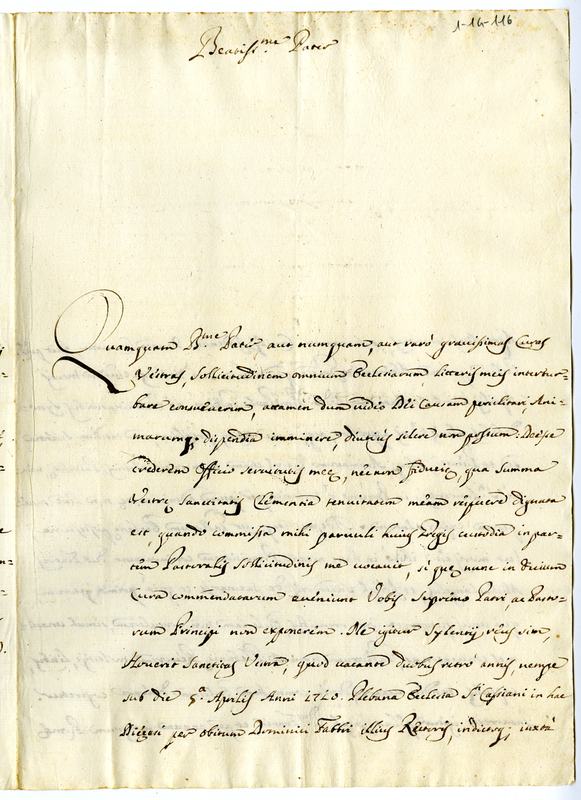 1-14-116
Beatiss.me Pater
Quamquam B.me Pater aut numquam, aut rarò gravissimas Curas
Vestras, sollicitudinem omnium Ecclesiarum, litteris meis intertur-
bare consueverim, attamen dum video Dei Causam periclitari, Ani-
marumq; dispendia imminere, diutius silere non possum. Deesse
crederem Officio servitutis meę, nec non fiducię, qua summa
Vestrę Sanctitatis Clementia tenuitatem meam respicere dignata
est, quandò commissa mihi parvuli huius Gregis custodia in par-
tem Pastoralis sollicitudinis me vocavit, si quę nunc in
Cura commendatarum eveniunt Vobis Supremo Patri, ac Pasto-
rum Principi non exponerem. Ne igitur sylentij reus sim,
Noverit Sanctitas Vestra, quod vacante duobus retrò annis, nempe
sub die 5.a Aprilis Anni 1740. Plebana Ecclesia S.ti Cassiani in hac
Dięcesi per obitum Dominici Fabbri illius Rectoris, indictoq; iuxtà